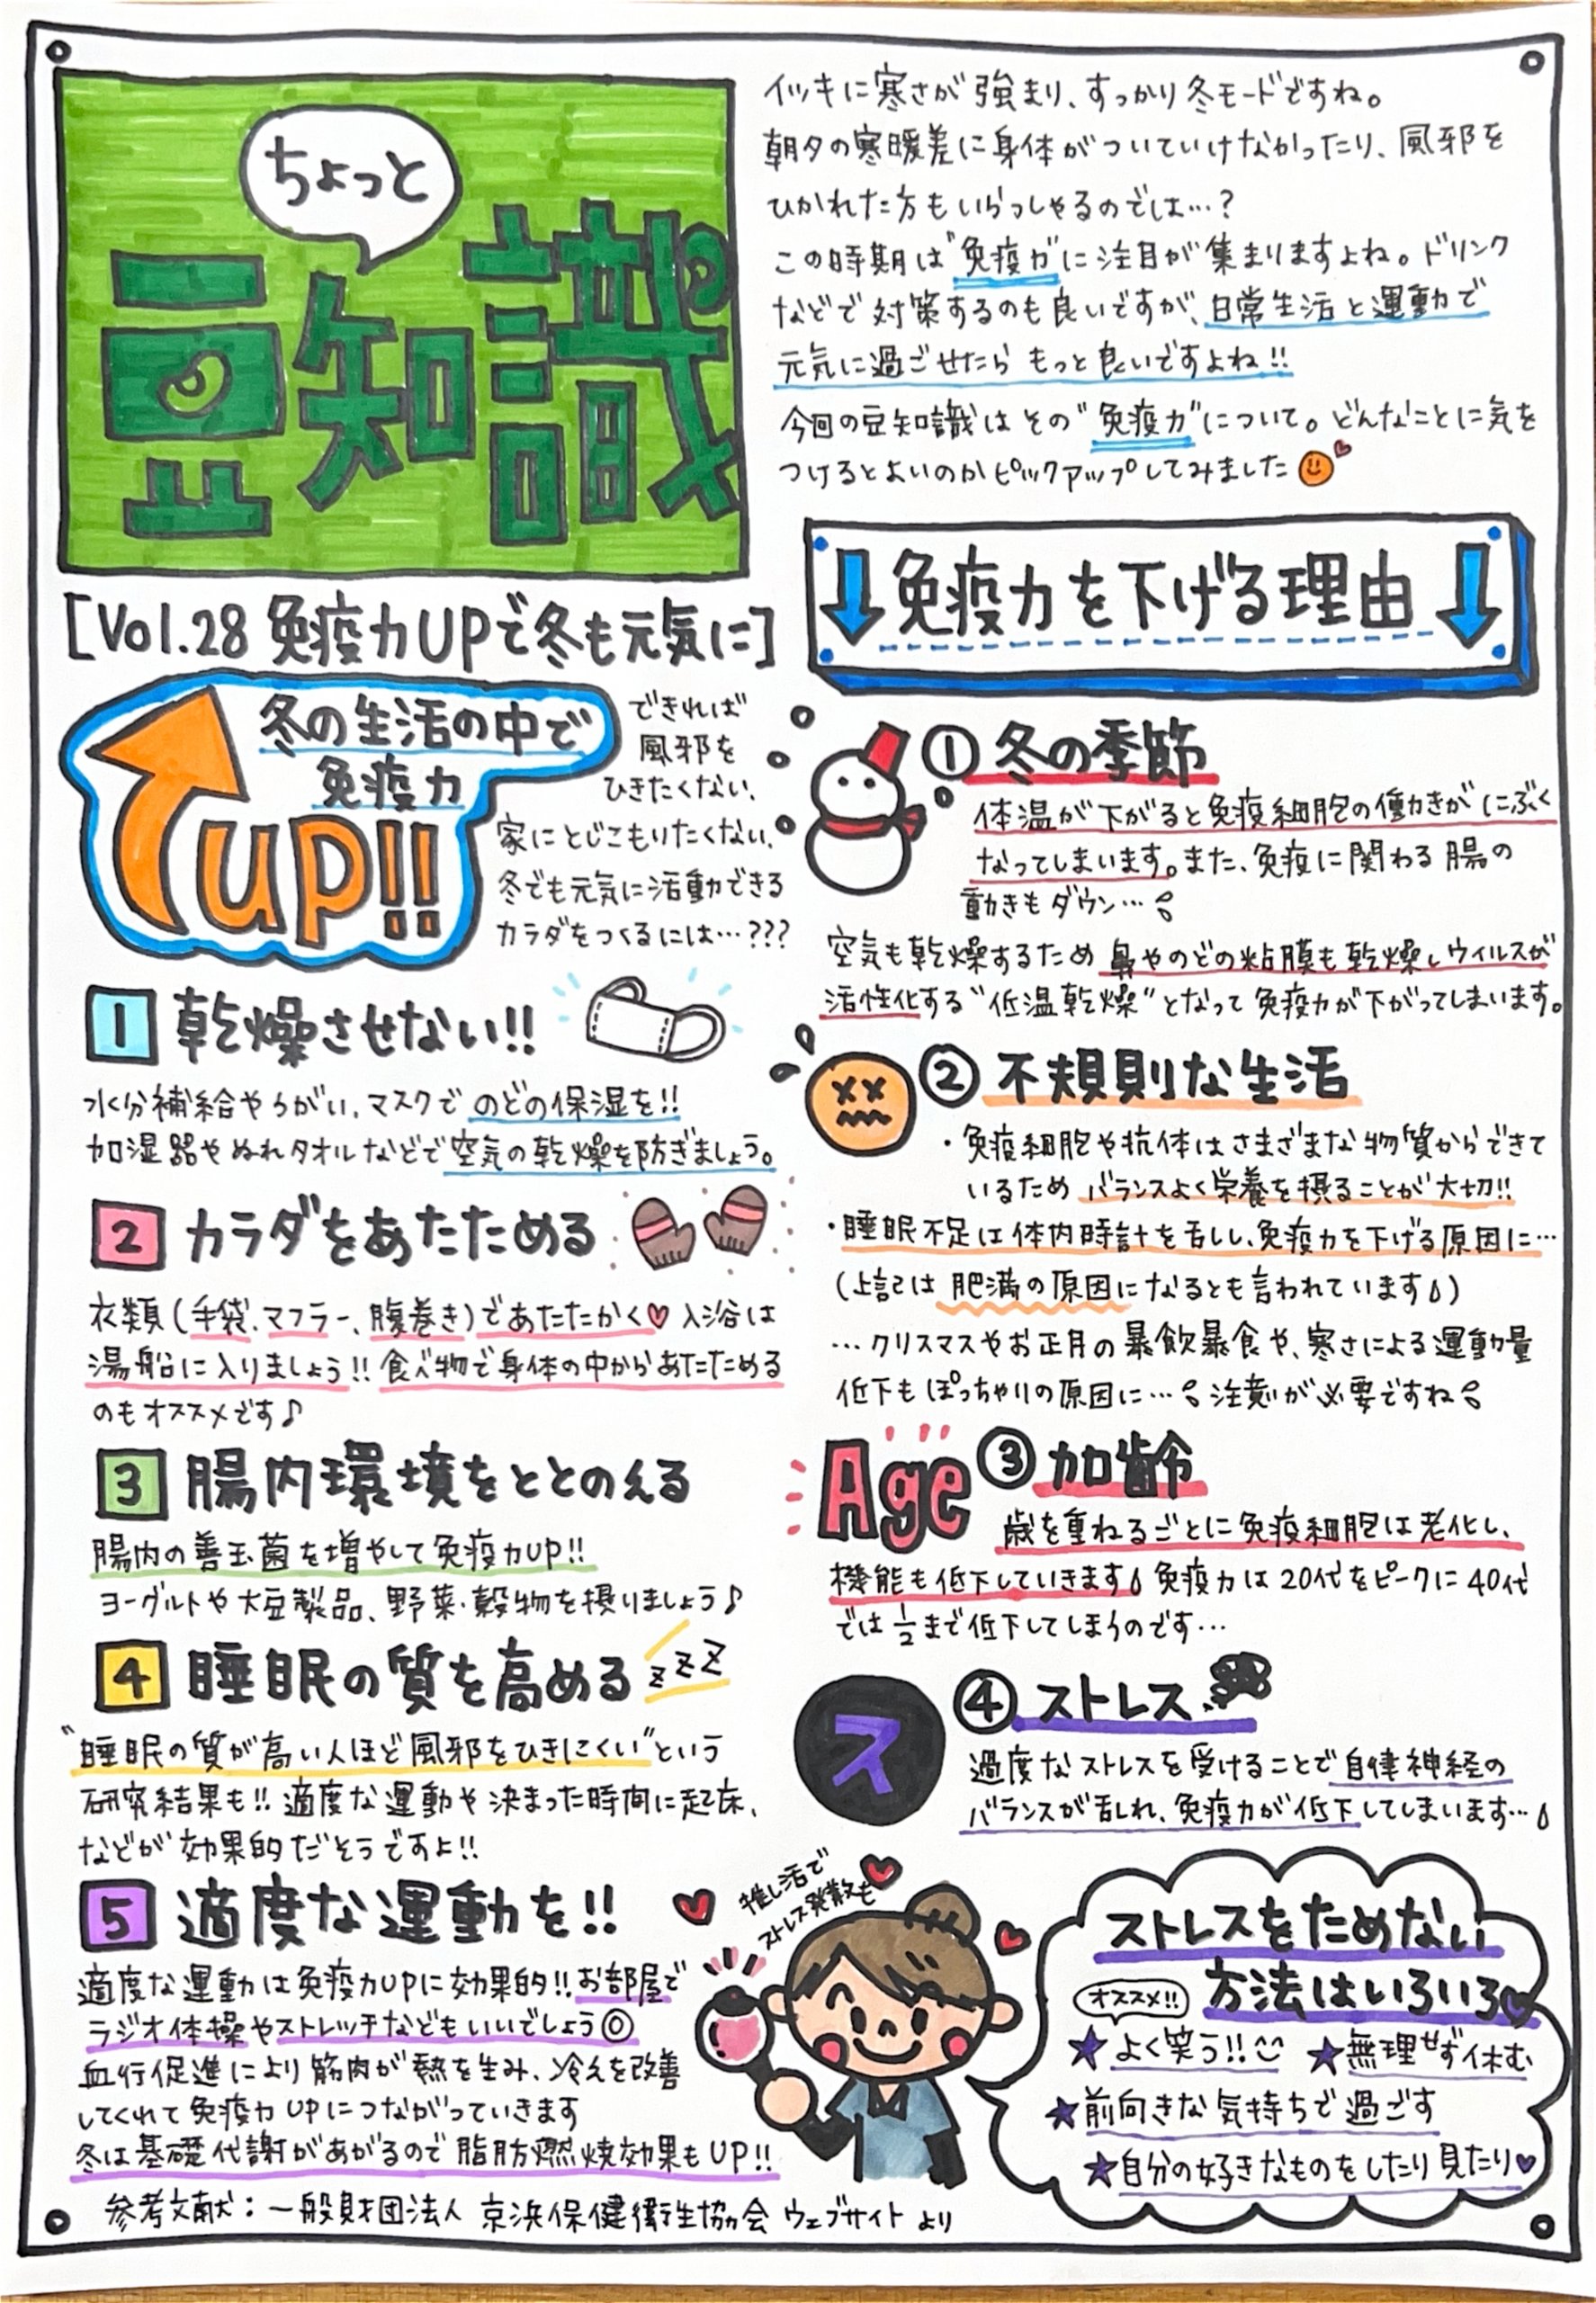 ちょっと
豆知識
[Vol.28 免疫力UPで冬も元気に]
イッキに寒さが強まり、すっかり冬モードですね。
朝夕の寒暖差に身体がついていけなかったり、風邪を
ひかれた方もいらっしゃるのでは…?
この時期は"免疫力"に注目が集まりますよね。ドリンク
などで対策するのも良いですが、日常生活と運動で
元気に過ごせたらもっと良いですよね!!
今回の豆知識はその"免疫力"について。どんなことに気を
つけるとよいのかピックアップしてみました
冬の生活の中で
免疫力
up!!
できれば
風邪を
ひきたくない、
家にとじこもりたくない、
冬でも元気に活動できる
カラダをつくるには…???
1 乾燥させない!!
水分補給やうがい、マスクでのどの保湿を!!
加湿器やぬれタオルなどで空気の乾燥を防ぎましょう。
2 カラダをあたためる
衣類(手袋、マフラー、腹巻き)であたたかく♥ 入浴は
湯船に入りましょう!! 食べ物で身体の中からあたためる
のもオススメです♪
3 腸内環境をととのえる
腸内の善玉菌を増やして免疫力UP!!
ヨーグルトや大豆製品、野菜・穀物を摂りましょう♪
4 睡眠の質を高める zzz
"睡眠の質が高い人ほど風邪をひきにくい"という
研究結果も!! 適度な運動や決まった時間に起床、
などが効果的だそうですよ!!
5 適度な運動を!!
適度な運動は免疫力UPに効果的!! お部屋で
ラジオ体操やストレッチなどもいいでしょう◎
血行促進により筋肉が熱を生み、冷えを改善
してくれて免疫力UPにつながっていきます
冬は基礎代謝があがるので脂肪燃焼効果もUP!!
↓免疫力を下げる理由↓
① 冬の季節
体温が下がると免疫細胞の働きがにぶく
なってしまいます。また、免疫に関わる腸の
動きもダウン…
空気も乾燥するため鼻やのどの粘膜も乾燥しウイルスが
活性化する"低温乾燥"となって免疫力が下がってしまいます。
② 不規則な生活
・免疫細胞や抗体はさまざまな物質からできて
いるためバランスよく栄養を摂ることが大切!!
・睡眠不足は体内時計を乱し、免疫力を下げる原因に…
(上記は肥満の原因になるとも言われています)
…クリスマスやお正月の暴飲暴食や、寒さによる運動量
低下もぽっちゃりの原因に… 注意が必要ですね
Age ③ 加齢
歳を重ねるごとに免疫細胞は老化し、
機能も低下していきます 免疫力は20代をピークに40代
では1/2まで低下してしまうのです…
ス
④ ストレス
過度なストレスを受けることで自律神経の
バランスが乱れ、免疫力が低下してしまいます…
推し活で
ストレス発散も
ストレスをためない
方法はいろいろ
オススメ!!
★よく笑う!! ★無理せず休む
★前向きな気持ちで過ごす
★自分の好きなものをしたり見たり♥
参考文献:一般財団法人 京浜保健衛生協会 ウェブサイトより